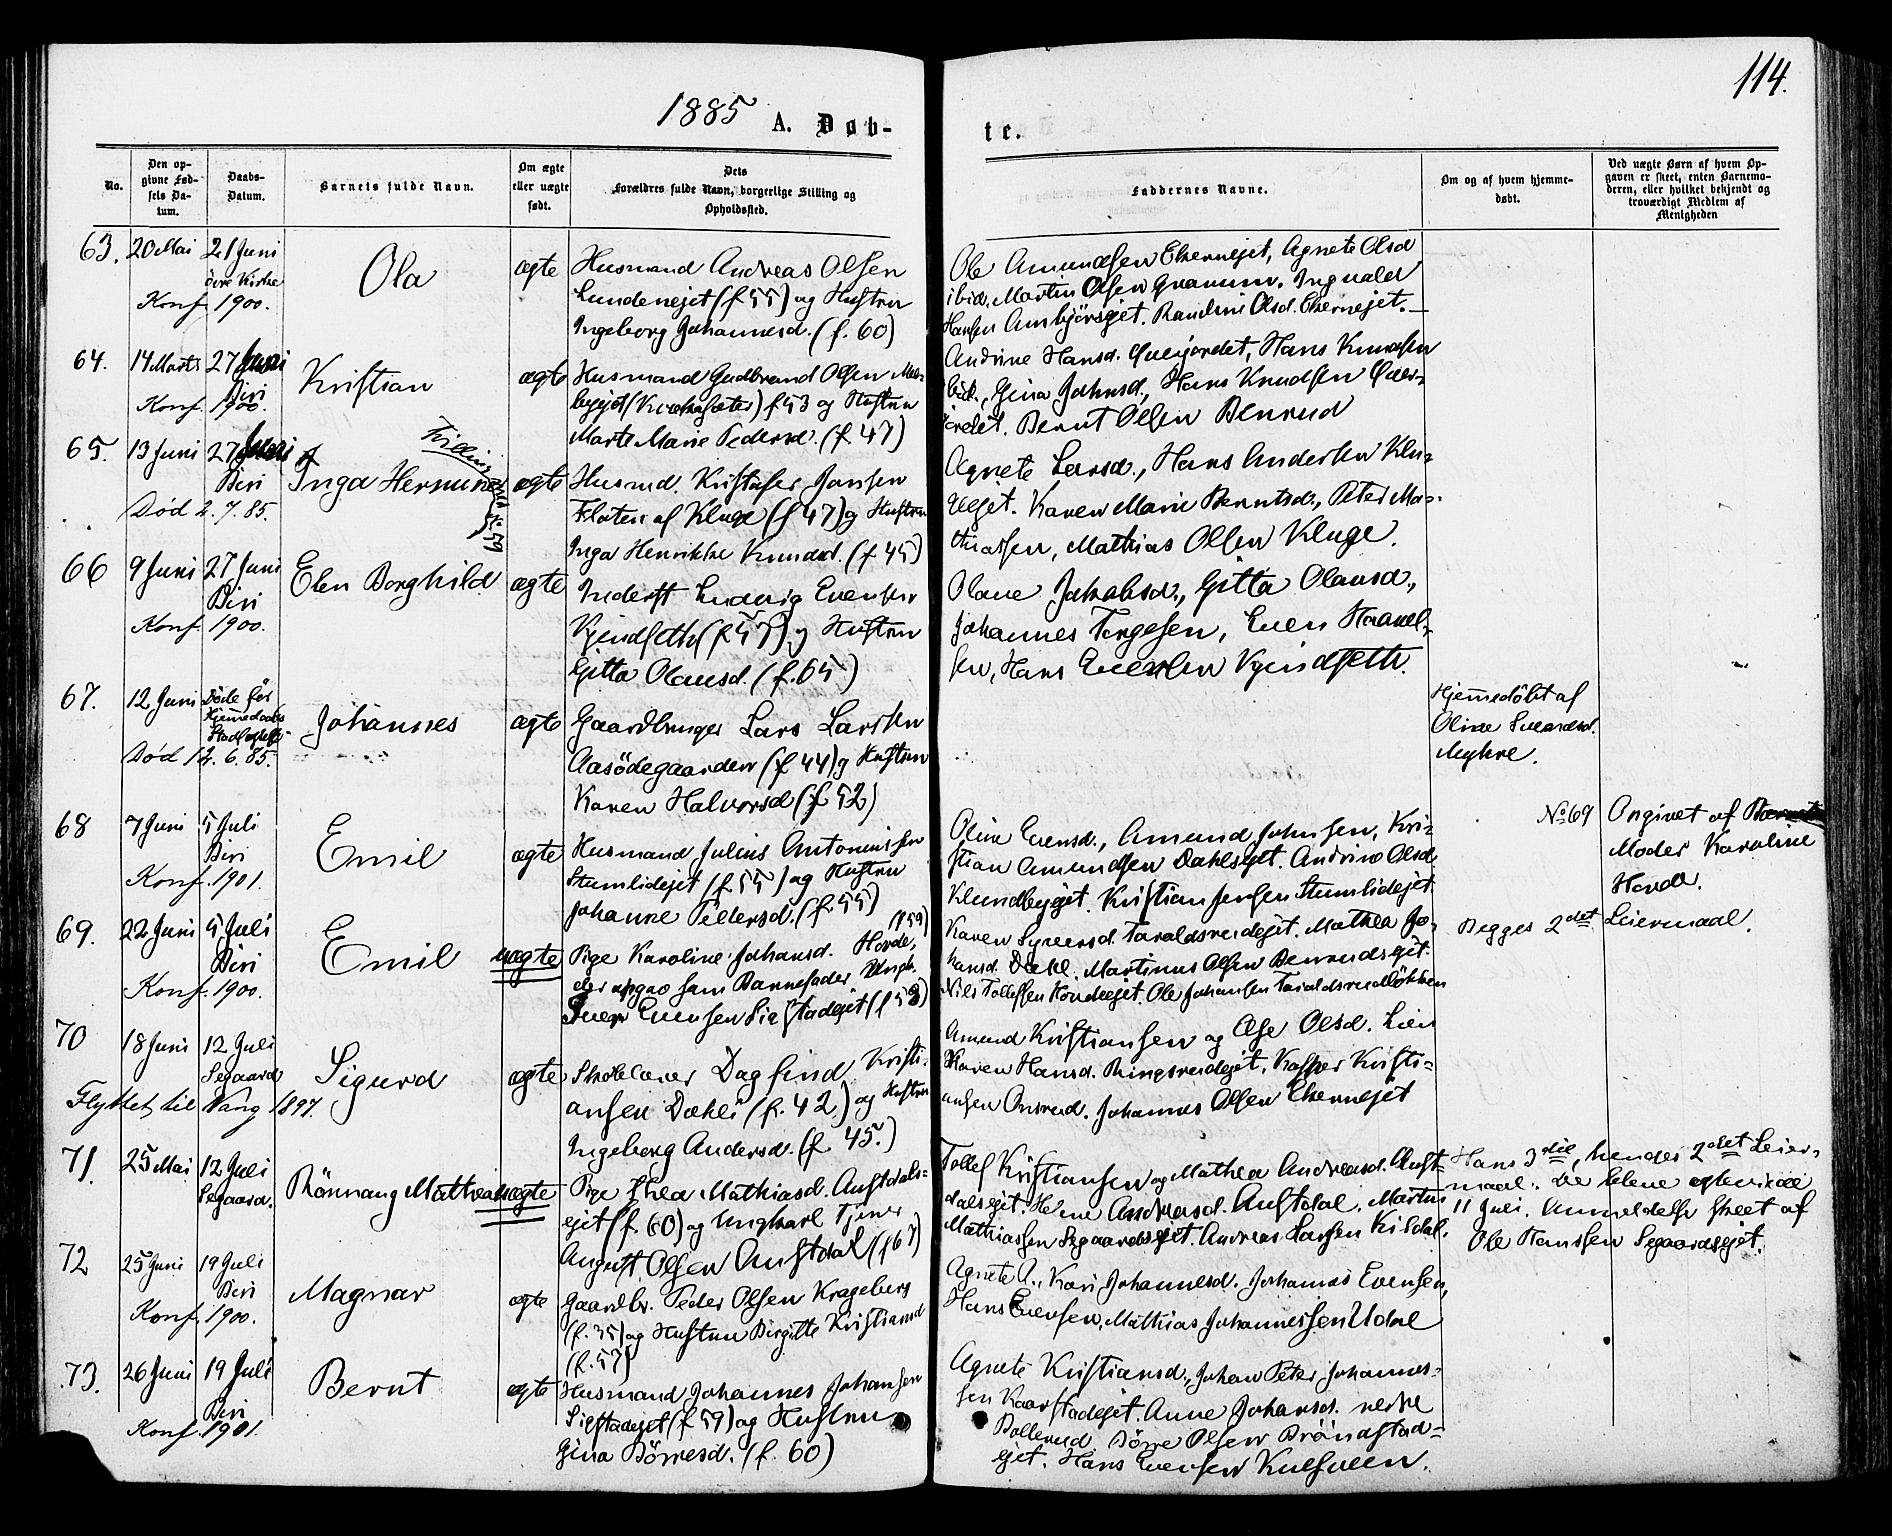 114.
1885 A. Døb-
te.
No.
Den op-
givne Fød-
sels Da-
tum.
Daabs-
Datum.
Barnets fulde Navn.
Om ægte
eller uægte
født.
Dets
Forældres fulde Navn, borgerlige Stilling og
Opholdssted.
Faddernes Navne.
Om og af hvem hjemme-
døbt.
Ved uægte Børn af hvem Op-
gaven er skeet, enten Barnemo-
deren, eller hvilket bekjendt og
troværdigt Medlem af
Menigheden
63. 20 Mai 21 Juni
Kirke
Konf. 1900.
Ola
ægte
Husmand Andreas Olsen
Lundeejet (f 55) og Hustru
Ingeborg Johannesd. (f. 60)
Ole Amundsen Ekernejet, Agnete Olsd
ibid. Martin Olsen Granum. Ingvald
Hansen Ambjörsejet. Randine Olsd. Ekerneejet.
64. 14 Marts 27 Juni
Biri
Konf. 1900.
Kristian
ægte
Husmand Gudbrand Olsen
f 53 og Hustru
Marte Marie Pedersd. (f. 47)
Andrine Hansd. Hans Knudsen
ibid., Gina Johnsd., Hans Knudsen Över-
jordet. Bernt Olsen Benrud
65. 13 Juni 27 Juni
Biri
Död 2. 7. 85.
Inga Hermine
Tvilling
No 59
ægte
Husmd. Kristofer Jansen
Floten af Kluge (f 47) og Hustru
Inga Henrikke Knudsd. (f 45)
Agnete Larsd., Hans Andersen Klu-
geejet. Karen Marie Berntsd., Peter Ma-
thiassen, Mathias Olsen Kluge.
66 9 Juni 27 Juni
Biri
Konf. 1900.
Elen Borghild
ægte
Inderst Ludvig Evensen
Kvindseth (f. 57) og Hustru
Gitta Olausd. (f. 65)
Olave Jakobsd., Gitta Olausd.,
Johannes Torgesen, Even Haavel-
sen, Hans Evensen Kvindseth.
67. 12 Juni Döde för
Hjemmedaabs
Död 12. 6. 85.
Johannes
ægte
Gaardbruger Lars Larsen
Aasödegaarden (f 44) og Hustru
Karen Halvorsd (f 52)
Hjemmedöbt af
Oline Sveendsd.
Myhre.
68 7 Juni 5 Juli
Biri
Konf. 1901.
Emil
ægte
Husmand Julius Antoniussen
Stumlidejet (f. 55) og Hustru
Johanne Pedersd. (f. 55)
Oline Evensd., Amund Johnsen, Kri-
stian Amundsen Dahlsejet. Andrine Olsd.
Klundbyejet. Kristian Jensen Stumlidejet.
69. 22 Juni 5 Juli
Biri
Konf. 1900.
Emil
uægte
Pige Karoline Johansd. Hovde, (f 59)
der opgav som Barnefader Ungk.
Iver Evensen Sigstadejet (f 58)
Karen Syversd. Taraldsrudejet. Mathea Jo-
hansd. Dæhl. Martinus Olsen Benrudsejet.
Nils Tollefsen Hovdeejet. Ole Johansen Taraldsrudlökken
No 69 Angivet af
Moder Karoline
Hovde.
Begges 2det Leiermaal.
70 18 Juni 12 Juli
Segaard
Flyttet til Vang 1897.
Sigurd
ægte
Skolelærer Dagfind Kristi-
ansen Dæhli (f. 42.) og Hustru
Ingeborg Andersd. (f. 45.)
Amund Kristiansen og Åse Olsd. Lien
Karen Hansd. Ringsrudejet, Kasper Kristi-
ansen Onsrud. Johannes Olsen Ekerneejet
71. 25 Mai 12 Juli
Segaard.
Rönnaug Mathea
uægte
Pige Thea Mathiasd. Austdals-
ejet (f. 60) og Ungkarl Tjener
August Olsen Austdal (f 67)
Tollef Kristiansen og Mathea Andreasd. Aust-
dalsejet. Helene Andreasd. Austdal. Martin
Mathiassen Segaardsejet. Andreas Larsen Kildal.
Hans 3die, hendes 2det Leier-
maal. De bleve ægteviede
11 Juli. Anmeldelse skeet af
Ole Hanssen Segaardsejet.
72 25 Juni 19 Juli
Biri
Konf. 1900.
Magnar
ægte
Gaardbr. Peder Olsen Krageberg
(f. 35) og Hustru Birgitte Kristiansd
(f. 57)
Agnete A., Kari Johannesd. Johannes Evensen,
Hans Evensen, Mathias Johannessen Udal
73. 26 Juni 19 Juli
Biri
Konf. 1901.
Bernt
ægte
Husmand Johannes Johansen
Sigstadejet (f 59) og Hustru
Gina Börresd. (f. 60)
Agnete Kristiansd., Johan Peter Johannes-
sen Kaarstadejet. Anne Johansd. nedre
Bollerud. Börre Olsen Bröndstad-
ejet. Hans Evensen Kulsveen.